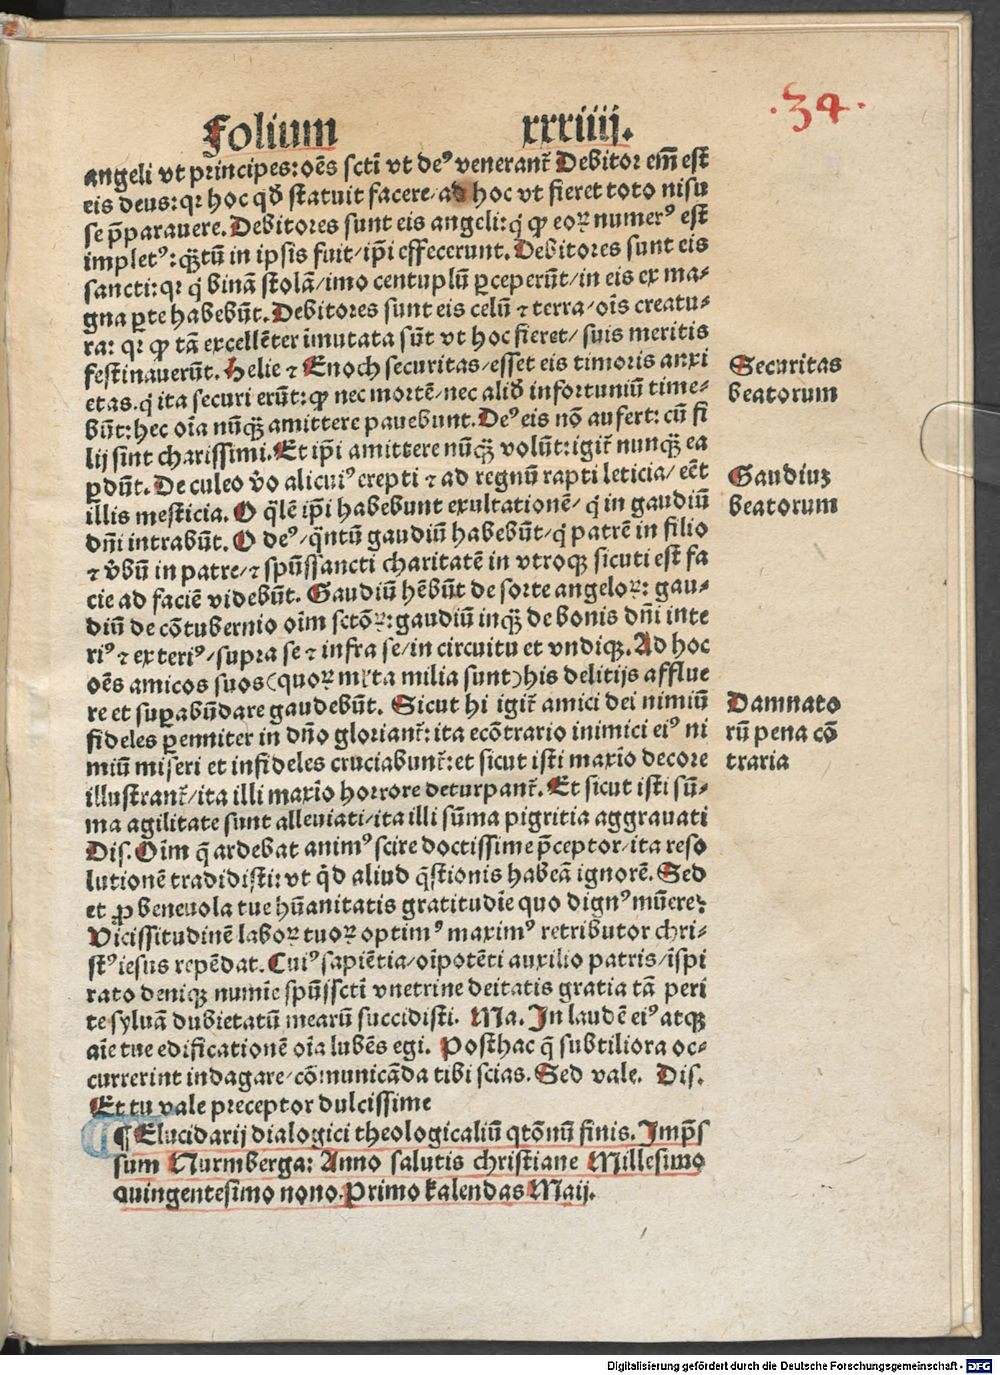 Folium xxxiiij.
.34.
angeli vt principes: oēs scti vt deꝰ venerant᷑ Debitor em̄ est
eis deus: qꝛ hoc qd̄ statuit facere/ ad hoc vt fieret toto nisu
se p̄parauere. Debitores sunt eis angeli: q̇ ꝙ eoꝝ numerꝰ est
impletꝰ: q̄ꝫtū in ipsis fuit/ ip̄i effecerunt. Debitores sunt eis
sancti: qꝛ q̇ binā stolā/ imo centuplū ꝑceperūt/ in eis ex ma-
gna ꝑte habebūt. Debitores sunt eis celū ⁊ terra/ oīs creatu-
ra: qꝛ ꝙ tā excellēter īmutata sūt vt hoc fieret/ suis meritis
festinauerūt. Helie ⁊ Enoch securitas/ esset eis timoris anxi
etas. q̇ ita securi erūt: ꝙ nec mortē/ nec alid̄ infortuniū time-
būt: hec oīa nūq̄ꝫ amittere pauebunt. Deꝰ eis nō aufert: cū fi
lij sint charissimi. Et ip̄i amittere nūq̄ꝫ volūt: igit᷑ nunq̄ꝫ ea
ꝑdūt. De culeo v̄o alicuiꝰ erepti ⁊ ad regnū rapti leticia/ eēt
illis mesticia. O q̄lē ip̄i habebunt exultationē/ q̇ in gaudiū
dn̄i intrabūt. O deꝰ/ q̄ntū gaudiū habebūt/ q̇ patrē in filio
⁊ v̄bū in patre/ ⁊ spūssancti charitatē in vtroqꝫ sicuti est fa
cie ad faciē videbūt. Gaudiū hēbūt de sorte angeloꝝ: gau-
diū de cōtubernio oīm sctōꝝ: gaudiū inq̄ꝫ de bonis dn̄i inte
riꝰ ⁊ exteriꝰ/ supra se ⁊ infra se/ in circuitu et vndiqꝫ. Ad hoc
oēs amicos suos (quoꝝ ml̄ta milia sunt) his delitijs afflue
re et suꝑabūdare gaudebūt. Sicut hi igit᷑ amici dei nimiū
fideles ꝑenniter in dn̄o gloriant᷑: ita ecōtrario inimici eiꝰ ni
miū miseri et infideles cruciabunt᷑: et sicut isti maxīo decore
illustrant᷑/ ita illi maxīo horrore deturpant᷑. Et sicut isti sū-
ma agilitate sunt alleuiati/ ita illi sūma pigritia aggrauati
Dis. Oīm q̄ ardebat animꝰ scire doctissime p̄ceptor/ ita reso
lutionē tradidisti: vt q̇d aliud q̄stionis habeā ignorē. Sed
et ꝓ beneuola tue hūanitatis gratitudīe quo dignꝰ mūere?
Vicissitudinē laboꝝ tuoꝝ optimꝰ maximꝰ retributor chri-
stꝰ iesus repēdat. Cuiꝰ sapiētia/ oīpotēti auxilio patris/ īspi
rato deniqꝫ numīe spūssctī vnetrine deitatis gratia tā peri
te syluā dubietatū mearū succidisti. Ma. In laudē eiꝰ atqꝫ
aīe tue edificationē oīa lubēs egi. Posthac q̄ subtiliora oc-
currerint indagare/ cōmunicāda tibi scias. Sed vale. Dis.
Et tu vale preceptor dulcissime
¶ Elucidarij dialogici theologicaliū qtōnū finis. Imp̄s
sum Nurmberga: Anno salutis christiane Millesimo
quingentesimo nono. Primo kalendas Maij.
Securitas
beatorum
Gaudiuꝫ
beatorum
Damnato
rū pena cō
traria
Digitalisierung gefördert durch die Deutsche Forschungsgemeinschaft - DFG